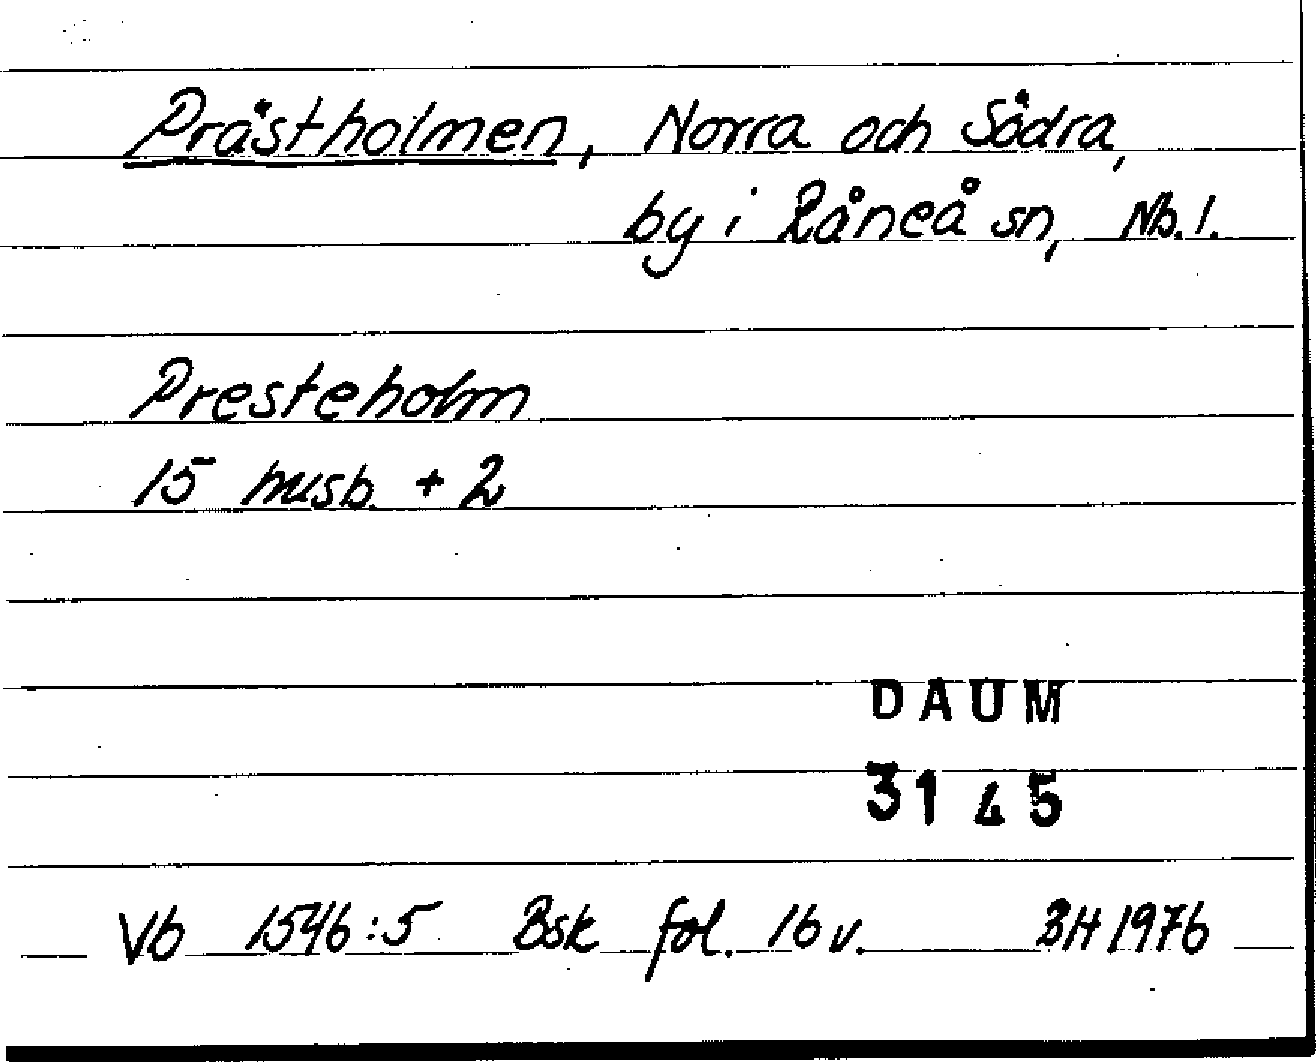 Prästholmen, Norra och Södra,
by i Råneå sn, Nb. l.
Presteholm
15 husb. + 2
DAUM
3145
Vb 1546:5 Bsk fol. 16 v. BH 1976